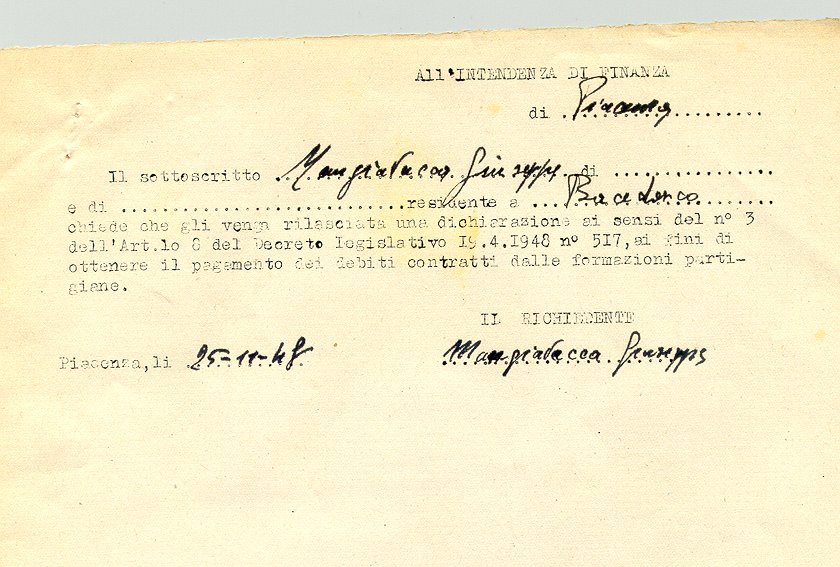 All'INTENDENZA DI FINANZA
di Piacenza
Il sottoscritto Mangiavacca Giuseppe di ................
e di ..............................residente a ... Bacedasco
chiede che gli venga rilasciata una dichiarazione ai sensi del n° 3
dell'Art.lo 8 del Decreto legislativo 19.4.1948 n° 517,ai fini di
ottenere il pagamento dei debiti contratti dalle formazioni parti-
giane.
IL RICHIEDENTE
Piacenza,li 25-11-48 Mangiavacca Giuseppe